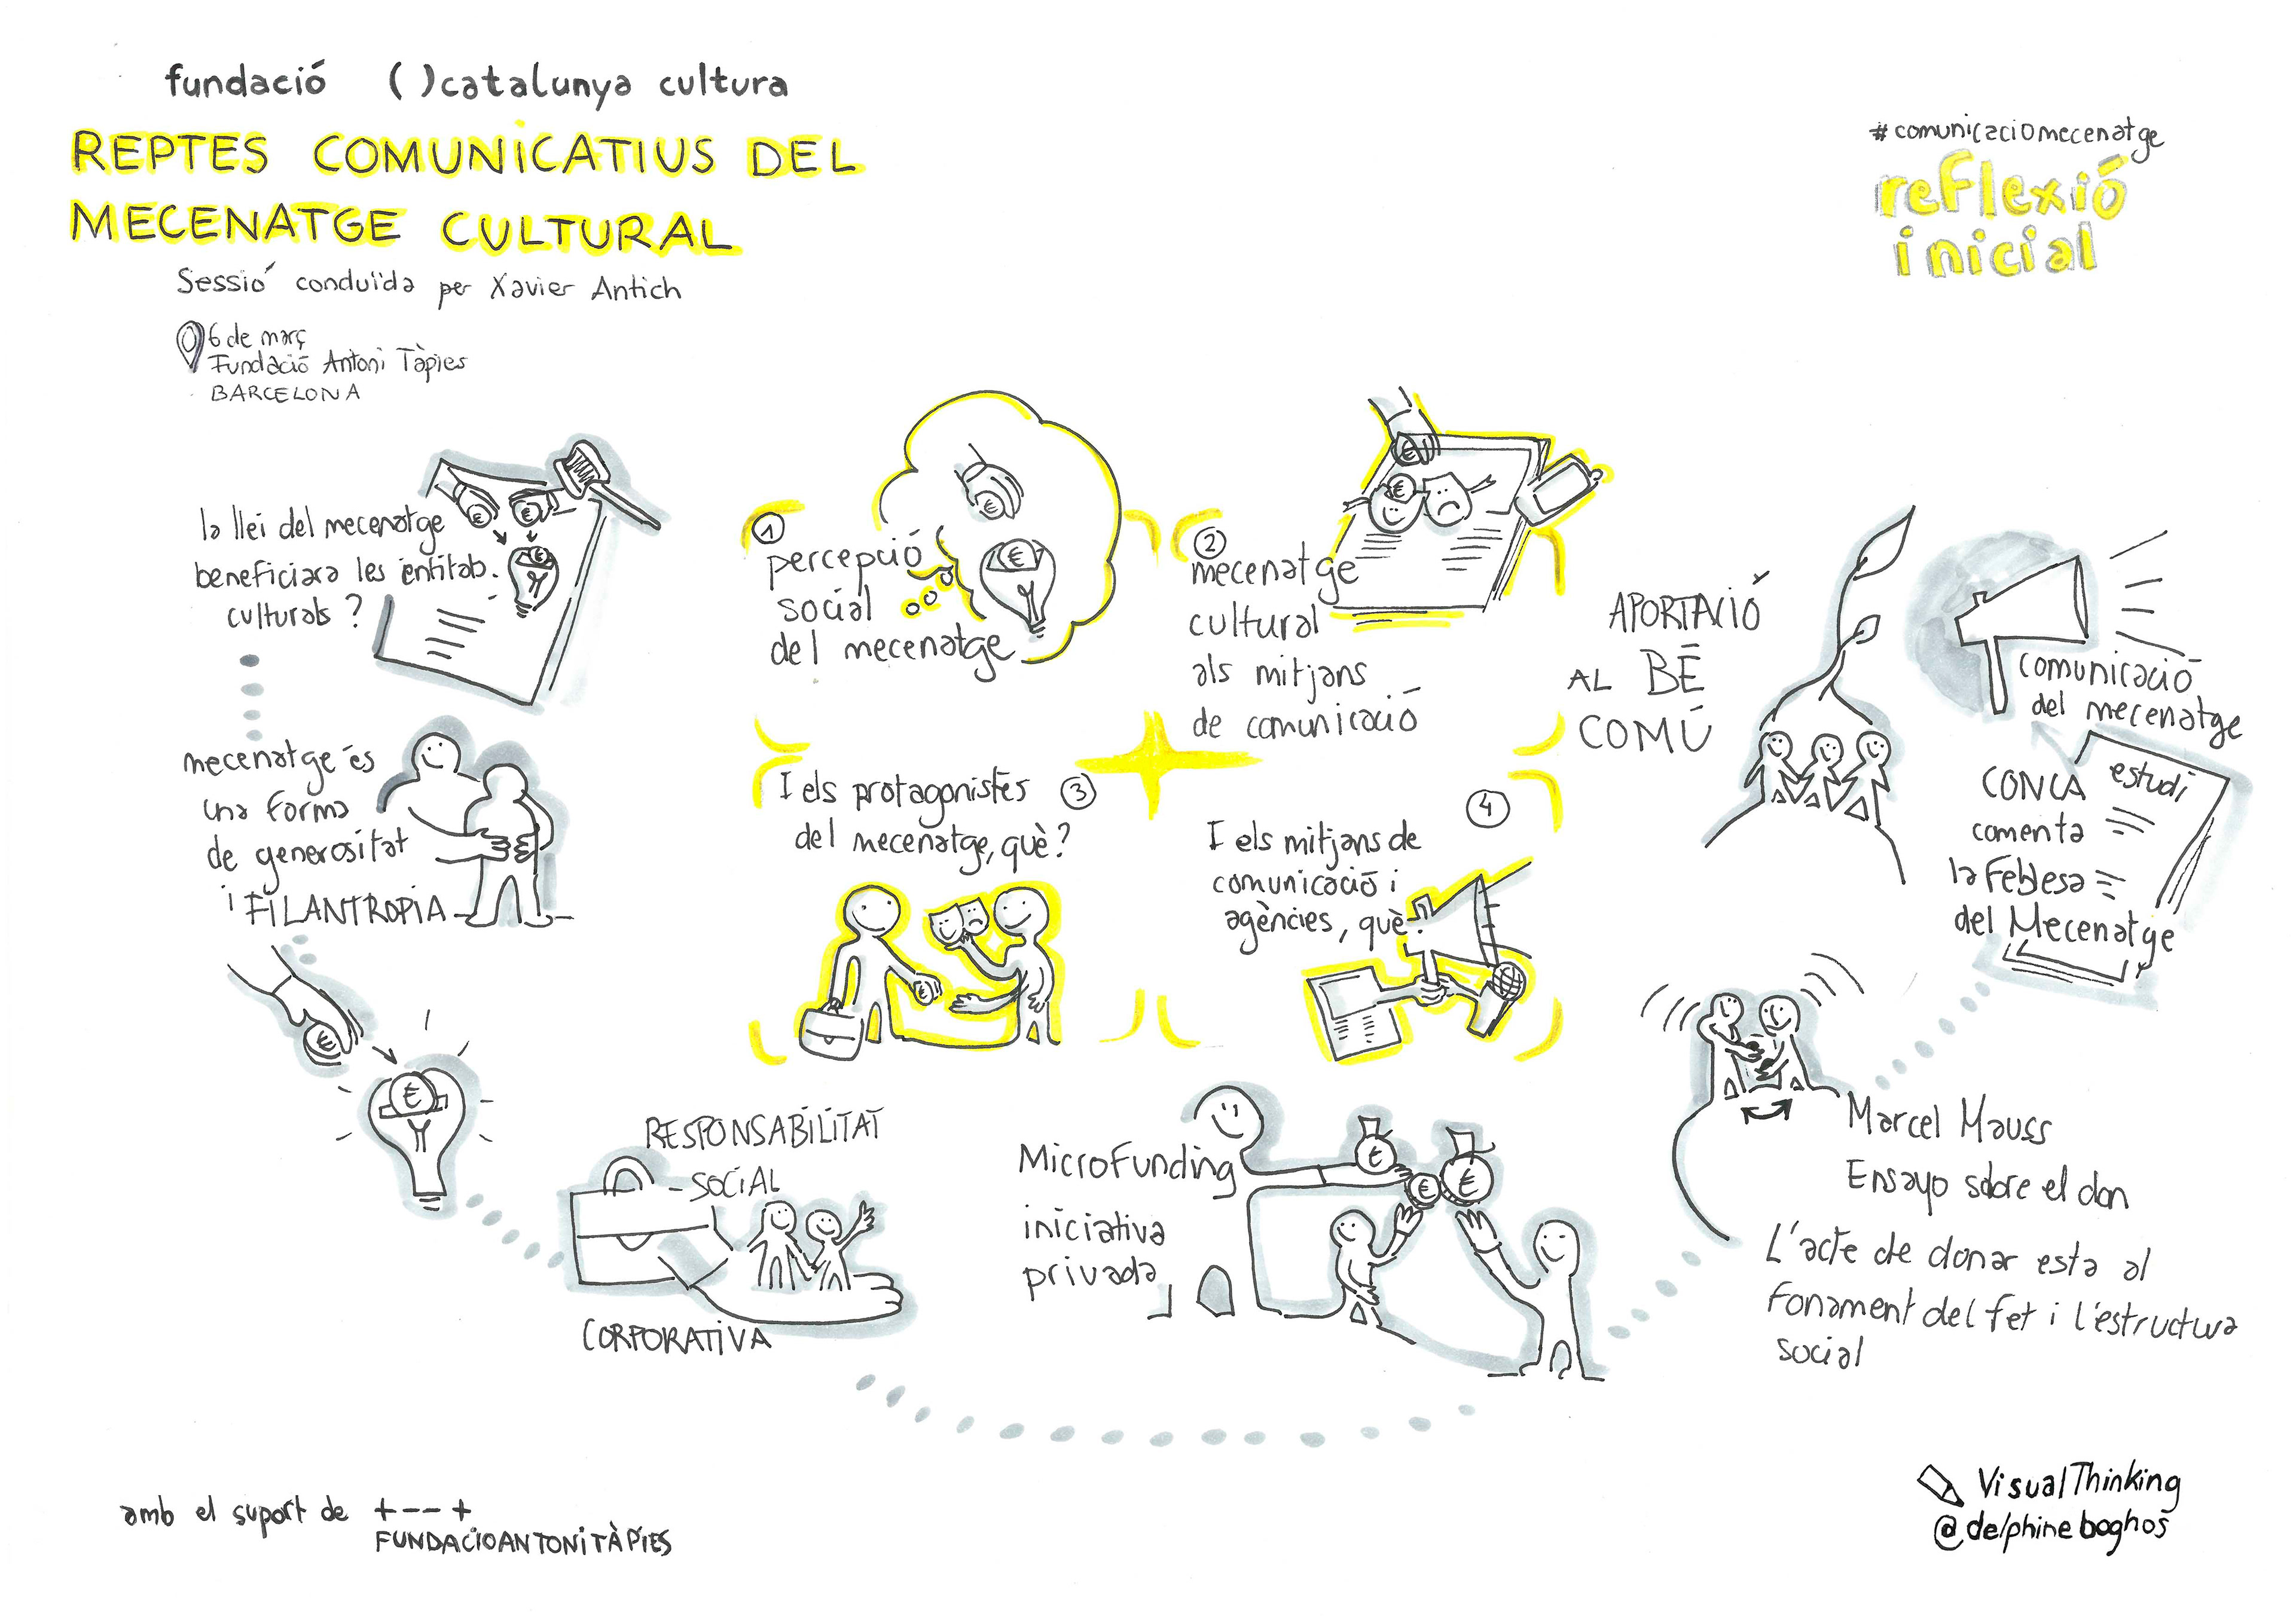 fundació ( )catalunya cultura
REPTES COMUNICATIUS DEL
MECENATGE CULTURAL
Sessió conduïda per Xavier Antich
6 de març
Fundació Antoni Tàpies
BARCELONA
#comunicaciomecenatge
reflexió
inicial
la llei del mecenatge
beneficiara les entitats.
culturals?
mecenatge és
una forma
de generositat
i FILANTROPIA
€
€
€
1
percepció
social
del mecenatge
€
€
2
mecenatge
cultural
als mitjans
de comunicació
€
I els protagonistes 3
del mecenatge, què?
€
4
I els mitjans de
comunicació i
agències, què?
APORTACIÓ
AL BÉ
COMÚ
comunicació
del mecenatge
estudi
CONCA
comenta
la Feblesa
del Mecenatge
€
€
RESPONSABILITAT
SOCIAL
CORPORATIVA
MicroFunding
iniciativa
privada
€
€
€
Marcel Mauss
Ensayo sobre el don
L'acte de donar esta al
Fonament del fet i l'estructura
social
amb el suport de +--+
FUNDACIOANTONITÀPIES
VisualThinking
@delphineboghos